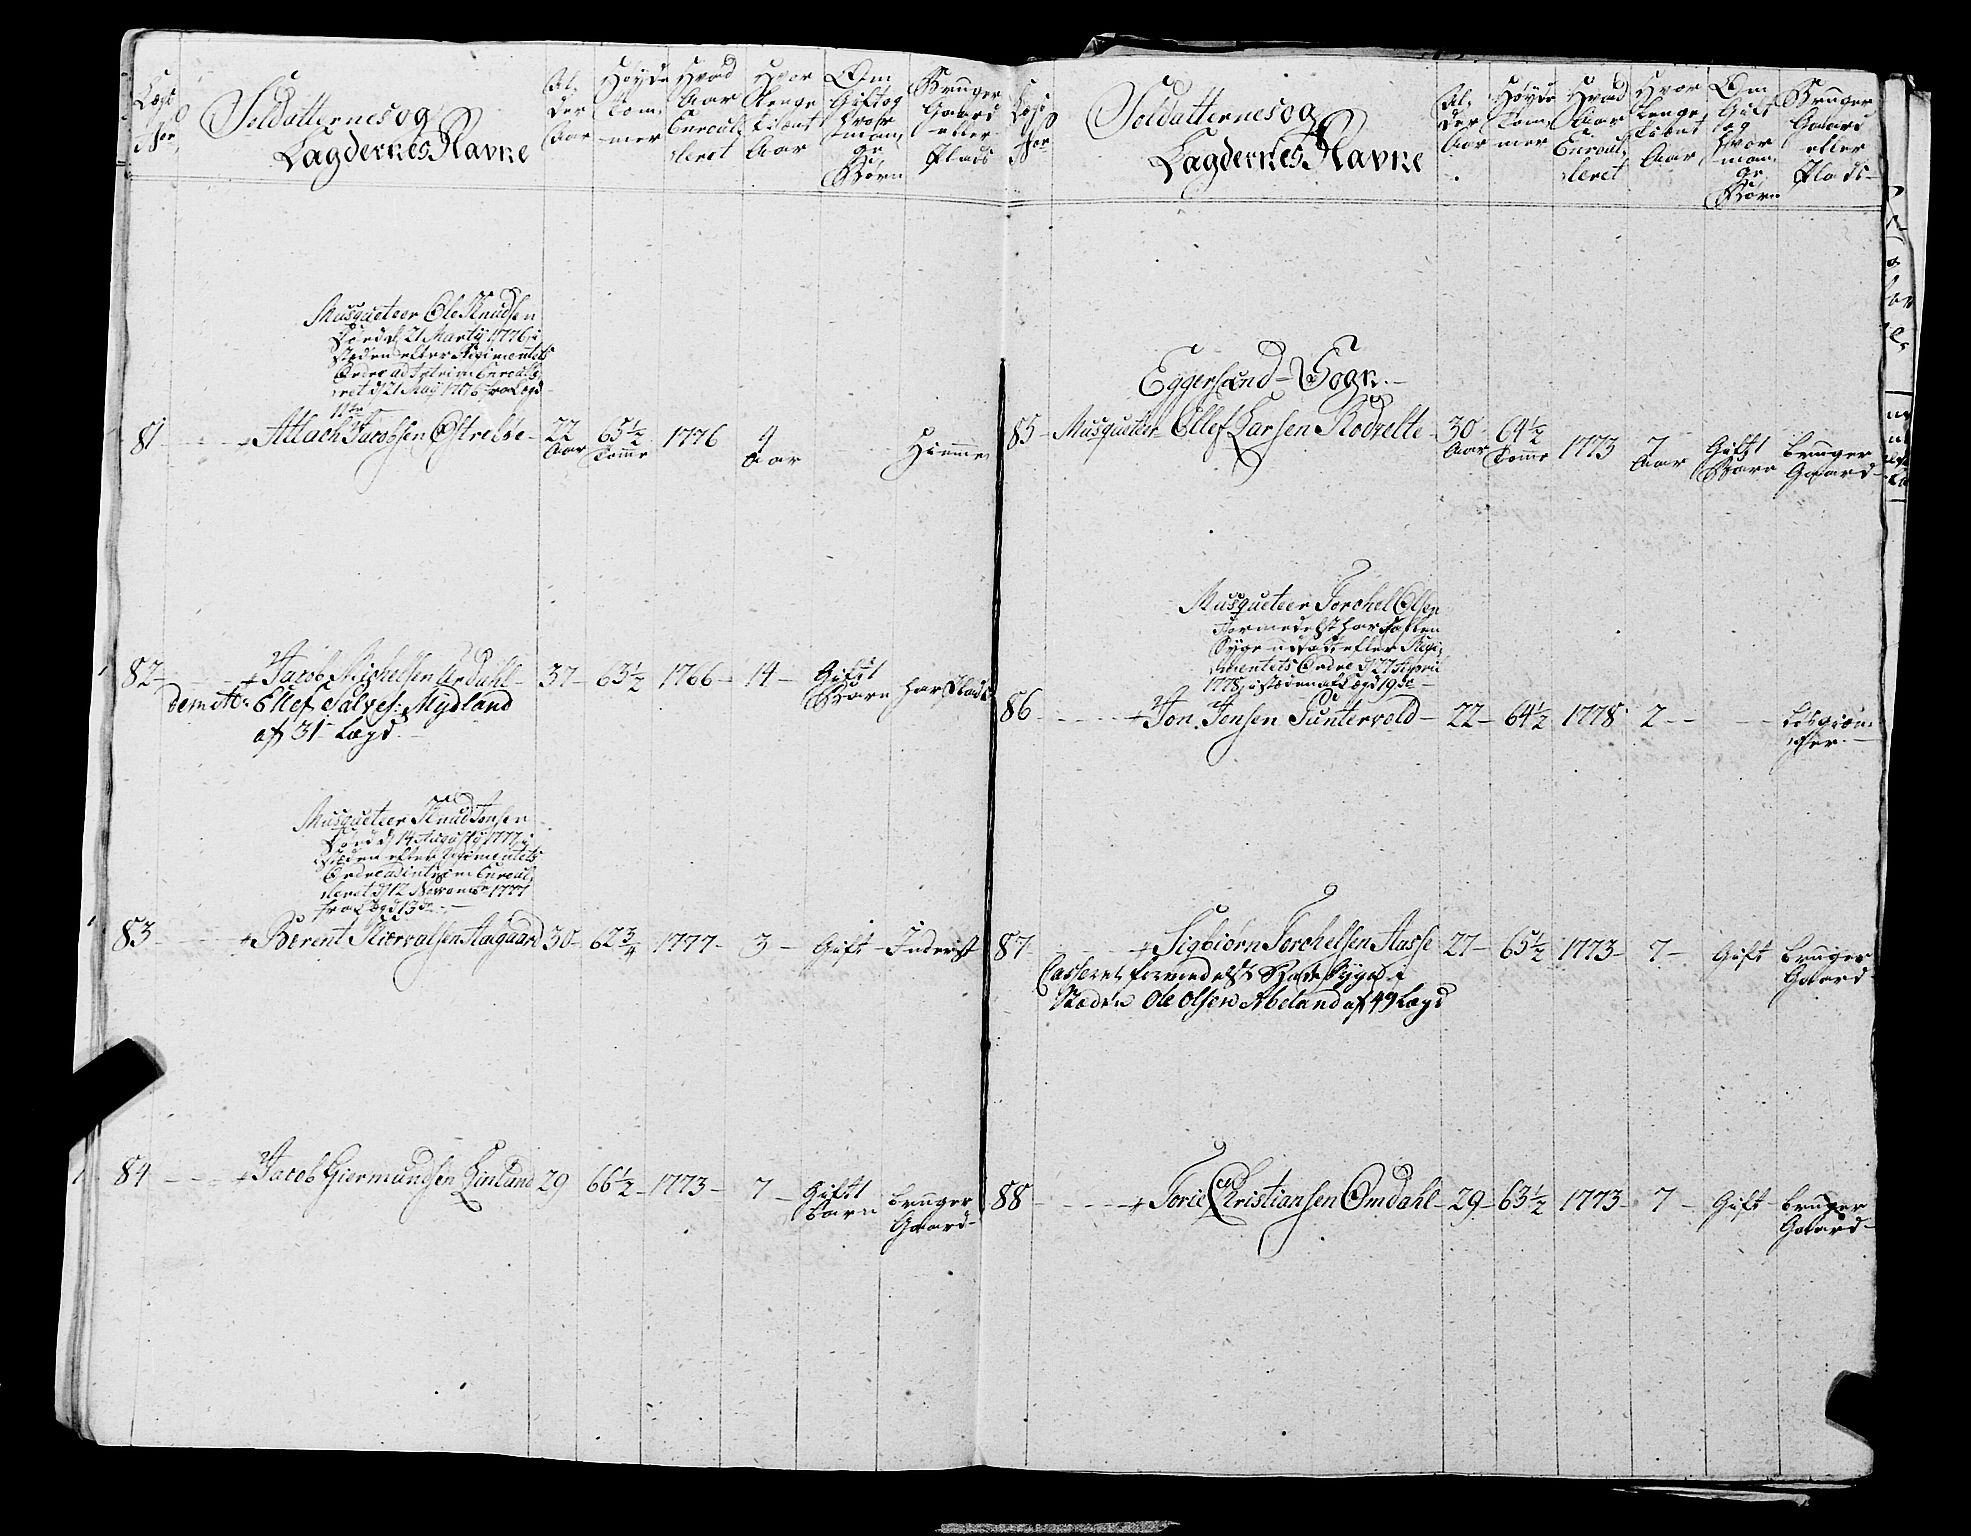 Lægd
Soldatternes og
Lagdernes Navne
Al,
der
Aar
Høyde
Tom,
mer
Hvad
Aar
Enroul,
leret
Hvor
lenge
tiænt
Aar
Om
Gift og
hvor
man,
ge
Børn
Bruger
Gaard
eller
Plads
Musqueteer Ole Knudsen
Død d 21 Marty 1776, i
stæden efter Regimentets
Ordre ad Intrim Enroulle,
ret d 21 May 1776 fra Lægd
81 Atlach Jacobsen Østrebøe 22 Aar 65½ Tomr 1776 4 Aar Hiemme
82 Jacob Michelsen Årdahl 37 63½ 1766 14 Gift 1 Barn har Plads
Ellef Salves: Mydland
af 31 Lægd
Musqueteer Knud Jonsen
Død d 14 Augusty 1777, i
stæden efter Regimentets
Ordre ad intrim Enroul,
leret d 12 Novembr 1777
fra Lægd 13de
83 Berent Siervalsen Aagaard 30 62¾ 1777 3 Gift Inderst
84 Jacob Giermundsen Linland 29 66½ 1773 7 Gift 1 barn bruger
Gaard
Lægd
Soldatternes og
Lagdernes Navne
Al,
der
Aar
Høyde
Tom,
mer
Hvad
Aar
Enroul,
leret
Hvor
lenge
tiænt
Aar
Om
Gift
og
hvor
man,
ge
Børn
Bruger
Gaard
eller
Plads
Eggersund Sogn
85 Musqueteer Ellef Larsen Rodvelte 30 Aar 64½ Tomr 1773 7 Aar Gift 1 Barn bruger
Gaard
Musqueteer Torchel Olsen
formedelst har falden
Syge udsadt efter Regi,
mentets Ordre d 27 April
1778, i stæden af Lægd 19de
86 Jon Jensen Puntervold 22 64½ 1778 2
87 Sigbiorn Torchelsen Aasse 27 65½ 1773 7 Gift bruger
Gaard
Casseret formedelst Syge i
Stæden Ole Olsen Abeland af 49 Lægd
88 Torie Christiansen Omdahl 29 63½ 1773 7 Gift bruger
Gaard